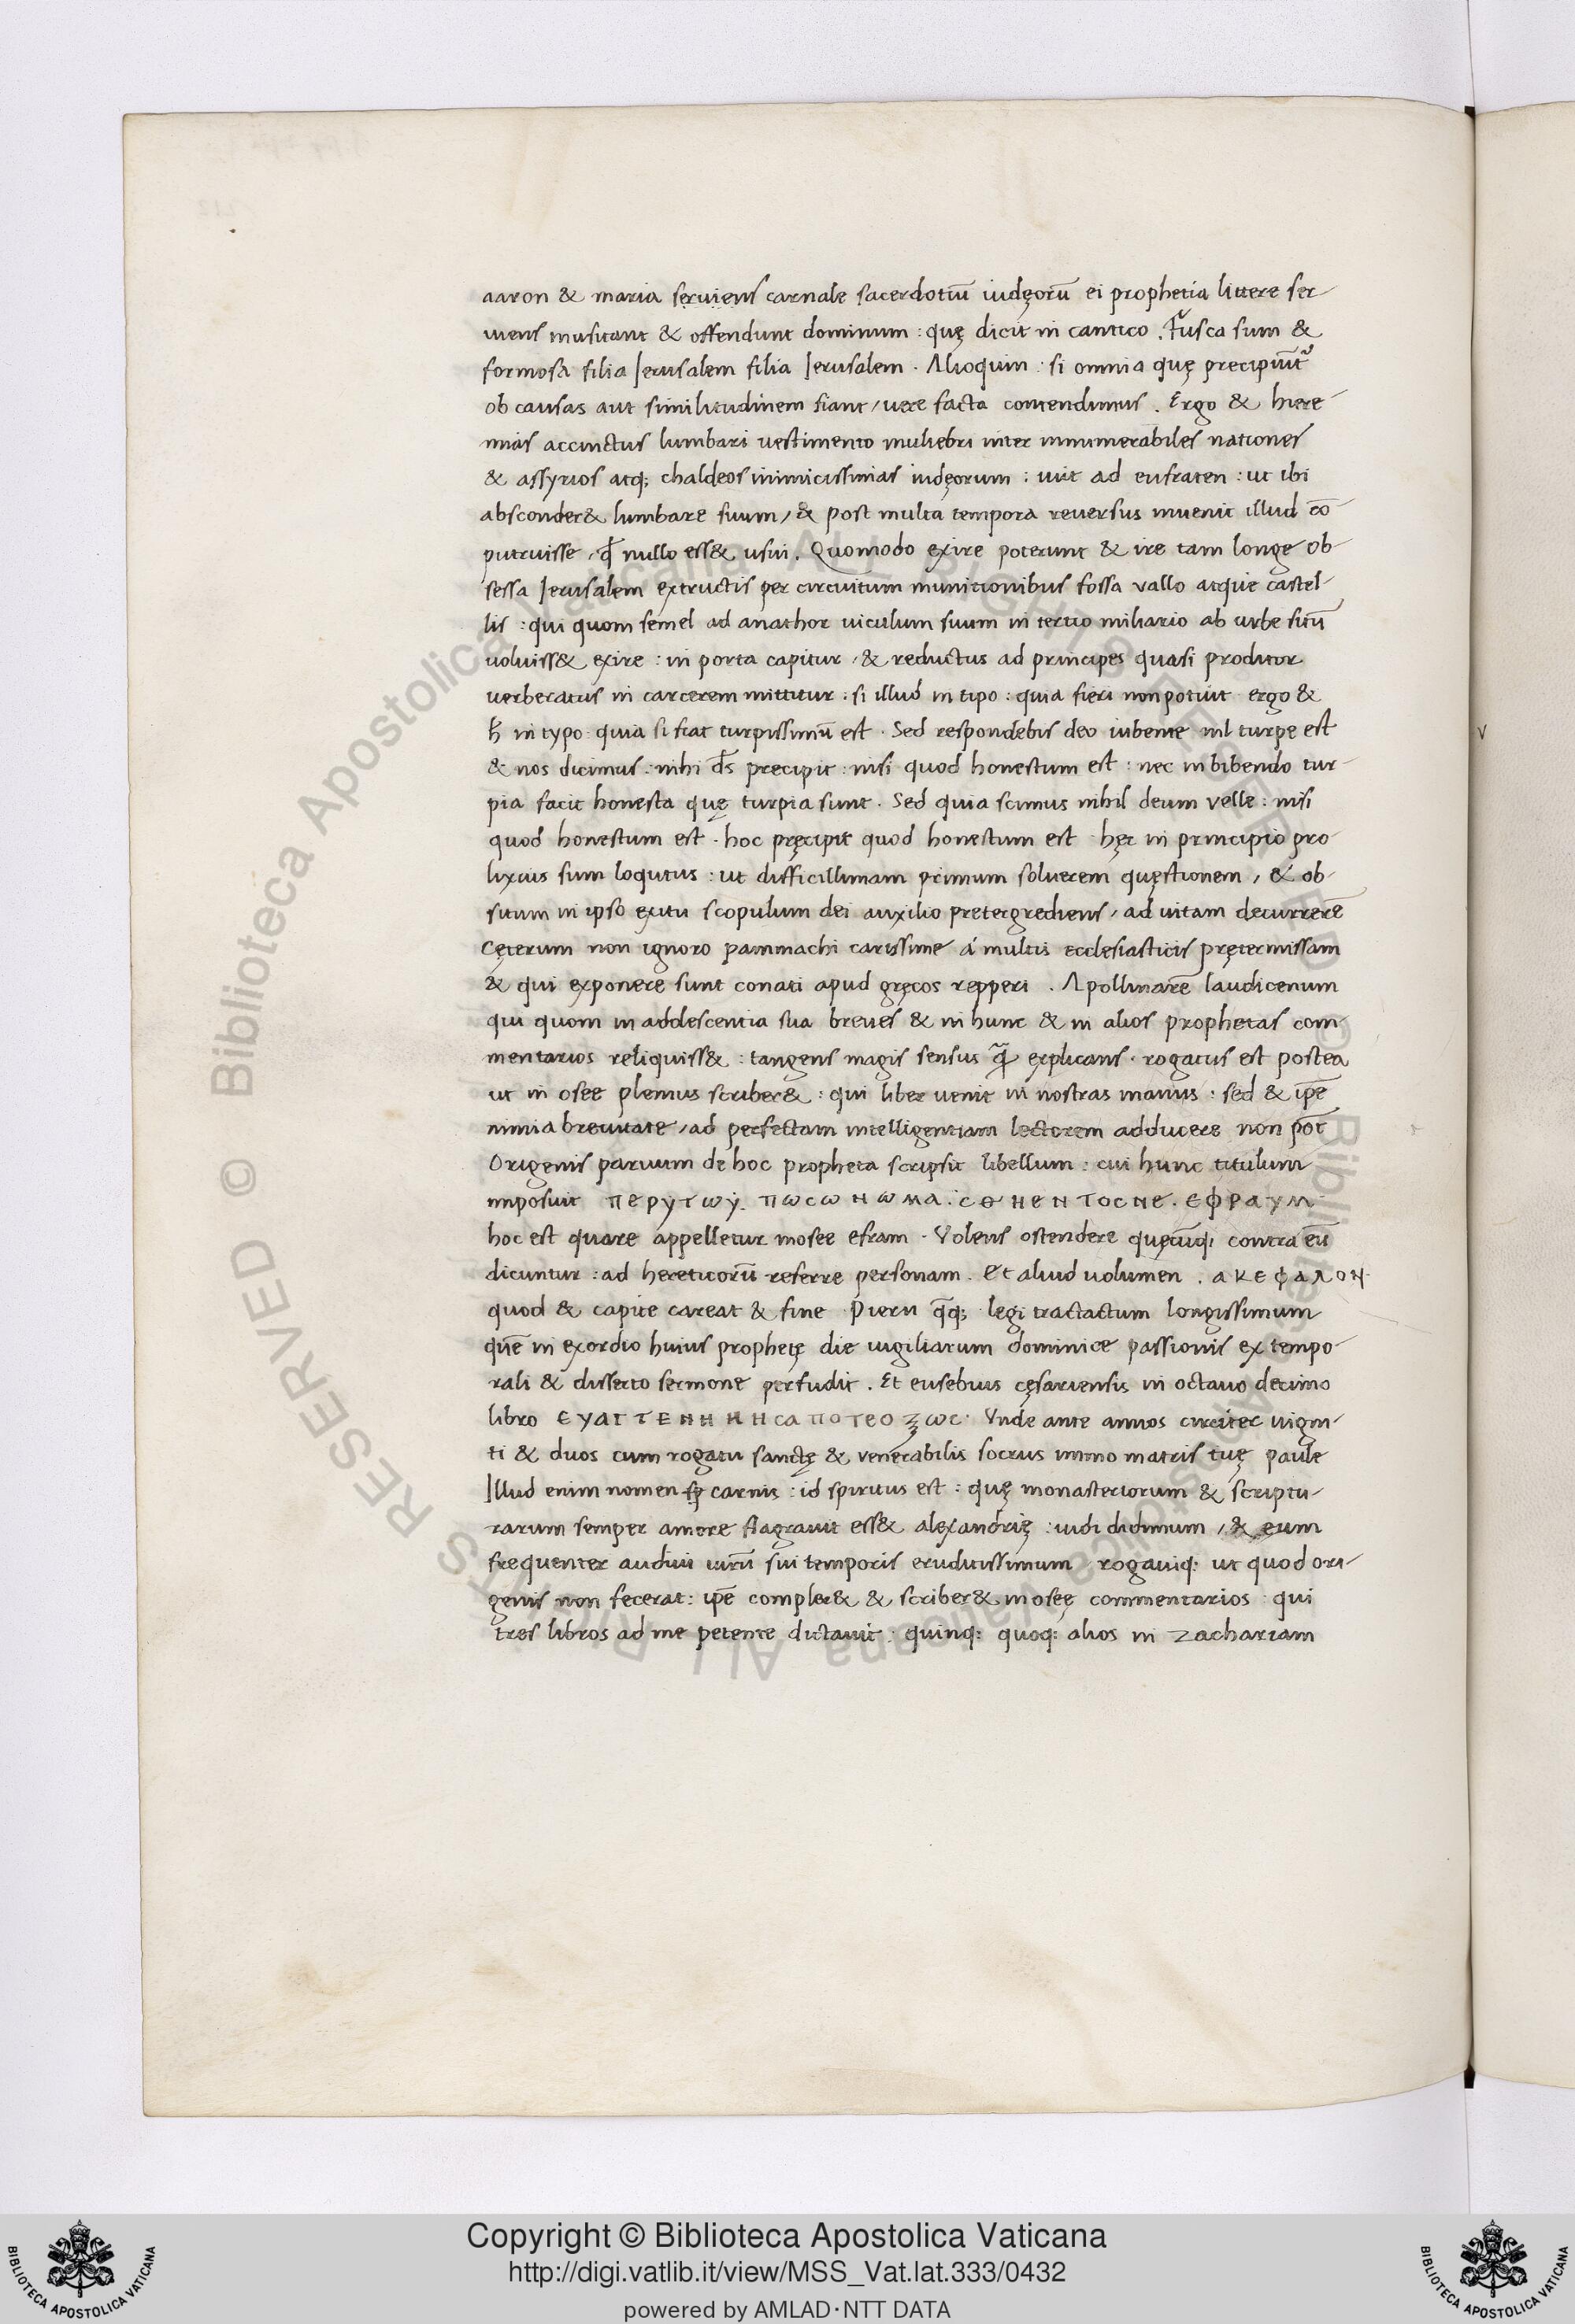 aaron & maria seruiens carnale sacerdotiū iudęorū ei prophetia littere ser-
uiens musitant & offendunt dominum : quę dicit in cantico . Fusca sum &
formosa filia Ierusalem filia Ierusalem . Alioquin : si omnia quę precipiūt᷑
ob causas aut similitudinem fiant / uere facta contendimus . Ergo & hiere-
mias accinctus lumbari uestimento muliebri inter innumerabiles nationes
& assyrios atq; chaldeos inimicissimas iudęorum : iuit ad eufraten : ut ibi
absconder& lumbare suum / & post multa tempora reuersus inuenit illud cō-
putruisse / qđ nullo ess& usui . Quomodo exire poterunt & ire tam longe ob-
sessa Ierusalem extructis per circuitum munitionibus fossa vallo atque castel-
lis : qui quom semel ad anathot uiculum suum in tertio miliario ab urbe sitū
uoluiss& exire : in porta capitur / & reductus ad principes quasi proditor
uerberatus in carcerem mittitur : si illud in tipo : quia fieri non potuit ergo &
h̄ in typo : quia si fiat turpissimū est . Sed respondebis deo iubente nil turpe est
& nos dicimus : nihi d̄s precipit : nisi quod honestum est : nec in bibendo tur-
pia facit honesta quę turpia sunt . Sed quia scimus nihil deum velle : nisi
quod honestum est . hoc pręcipit quod honestum est hęc in principio pro-
lixius sum loqutus : ut difficillimam primum soluerem quęstionem / & ob-
situm in ipso exitu scopulum dei auxilio pretergrediens / ad uitam decurrerē
Cęterum non ignoro pammachi carissime á multis ecclesiasticis prętermissam
& qui exponere sunt conati apud gręcos repperi . Apollinarē laudicenum
qui quom in addescentia sua breues & in hunc & in alios prophetas com-
mentarios reliquiss& : tangens magis sensus q̄ꝫ explicans . rogatus est postea
ut in osee plenius scriber& : qui liber uenit in nostras manus : sed & ip̄e
nimia breuitate / ad perfectam intelligentiam lectorem adducere non pōt
Origenis paruum de hoc propheta scripsit libellum : cui hunc titulum
imposuit περυτωυ. πωcωнωмα. cθнεнτοcнε . εφραυм
hoc est quare appelletur mosee efram . Volens ostendere quęcūq; contra eū
dicuntur : ad hereticorū referre personam . Et aliud uolumen . ακεφαλον.
quod & capite careat & fine Pierii q̄q; legi tractactum longissimum
quē in exordio huius prophetę die uigiliarum dominice passionis ex tempo-
rali & disserto sermone perfudit . Et eusebius cęsariensis in octauo decimo
libro ευαгτεннннcαποτεοξωc . Vnde ante annos circiter uigin-
ti & duos cum rogatu sanctę & venerabilis socrus immo matris tuę paule
Illud enim nomen carnis : id spiritus est : quę monasteriorum & scriptu-
rarum semper amore flagrauit ess& alexandrię : uidi didimum / & eum
frequenter audiui uirū sui temporis eruditissimum rogauiq; ut quod ori-
genis non fecerat : ip̄e compler& & scriber& in oseę commentarios : qui
tres libros ad me petente dictauit : quinq; quoq; alios in zachariam
© Biblioteca Apostolica Vaticana ALL RIGHTS RESERVED
© Biblioteca Apostolica Vaticana ALL RIGHTS RESERVED
Copyright © Biblioteca Apostolica Vaticana
http://digi.vatlib.it/view/MSS_Vat.lat.333/0432
powered by AMLAD·NTT DATA
BIBLIOTECA APOSTOLICA VATICANA
BIBLIOTECA APOSTOLICA VATICANA